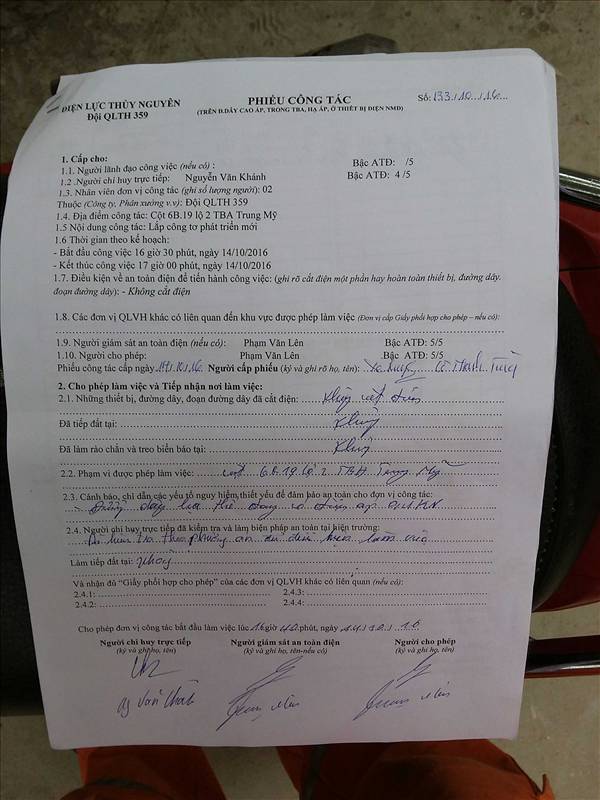 ĐIỆN LỰC THỦY NGUYÊN
Đội QLTH 359
PHIẾU CÔNG TÁC
(TRÊN Đ.DÂY CAO ÁP, TRONG TBA, HẠ ÁP, Ở THIẾT BỊ ĐIỆN NMĐ)
Số: 133/10/16
1. Cấp cho:
1.1. Người lãnh đạo công việc (nếu có) : Bậc ATĐ: /5
1.2 .Người chỉ huy trực tiếp: Nguyễn Văn Khánh Bậc ATĐ: 4 /5
1.3. Nhân viên đơn vị công tác (ghi số lượng người): 02
Thuộc (Công ty, Phân xưởng v.v): Đội QLTH 359
1.4. Địa điểm công tác: Cột 6B.19 lộ 2 TBA Trung Mỹ
1.5 Nội dung công tác: Lắp công tơ phát triển mới
1.6 Thời gian theo kế hoạch:
- Bắt đầu công việc 16 giờ 30 phút, ngày 14/10/2016
- Kết thúc công việc 17 giờ 00 phút, ngày 14/10/2016
1.7. Điều kiện về an toàn điện để tiến hành công việc: (ghi rõ cắt điện một phần hay hoàn toàn thiết bị, đường dây.
đoạn đường dây): - Không cắt điện
1.8. Các đơn vị QLVH khác có liên quan đến khu vực được phép làm việc (Đơn vị cấp Giấy phối hợp cho phép – nếu có):
1.9. Người giám sát an toàn điện: Phạm Văn Lên Bậc ATĐ: 5/5
1.10. Người cho phép: Phạm Văn Lên Bậc ATĐ: 5/5
Phiếu công tác cấp ngày 14/10/16 Người cấp phiếu (ký và ghi rõ họ, tên):
2. Cho phép làm việc và Tiếp nhận nơi làm việc:
2.1. Những thiết bị, đường dây, đoạn đường dây đã cắt điện: Không cắt điện
Đã tiếp đất tại: Không
Đã làm rào chắn và treo biển báo tại: Không
2.2. Phạm vi được phép làm việc: cột 6B.19 lộ 2 TBA Trung Mỹ
2.3. Cảnh báo, chỉ dẫn các yếu tố nguy hiểm thiết yếu để đảm bảo an toàn cho đơn vị công tác:
- Đường dây hạ thế đang có điện áp
2.4. Người chỉ huy trực tiếp đã kiểm tra và làm biện pháp an toàn tại hiện trường:
phương án đủ điều kiện làm việc
Làm tiếp đất tại: Không
Và nhận đủ “Giấy phối hợp cho phép” của các đơn vị QLVH khác có liên quan (nếu có):
2.4.1: 2.4.3:
2.4.2: 2.4.4:
Cho phép đơn vị công tác bắt đầu làm việc lúc 16 giờ 40 phút, ngày 14/10/16
Người chỉ huy trực tiếp Người giám sát an toàn điện Người cho phép
(ký và ghi họ, tên) (ký và ghi họ, tên-nếu có) (ký và ghi họ, tên)
Ng Văn Khánh